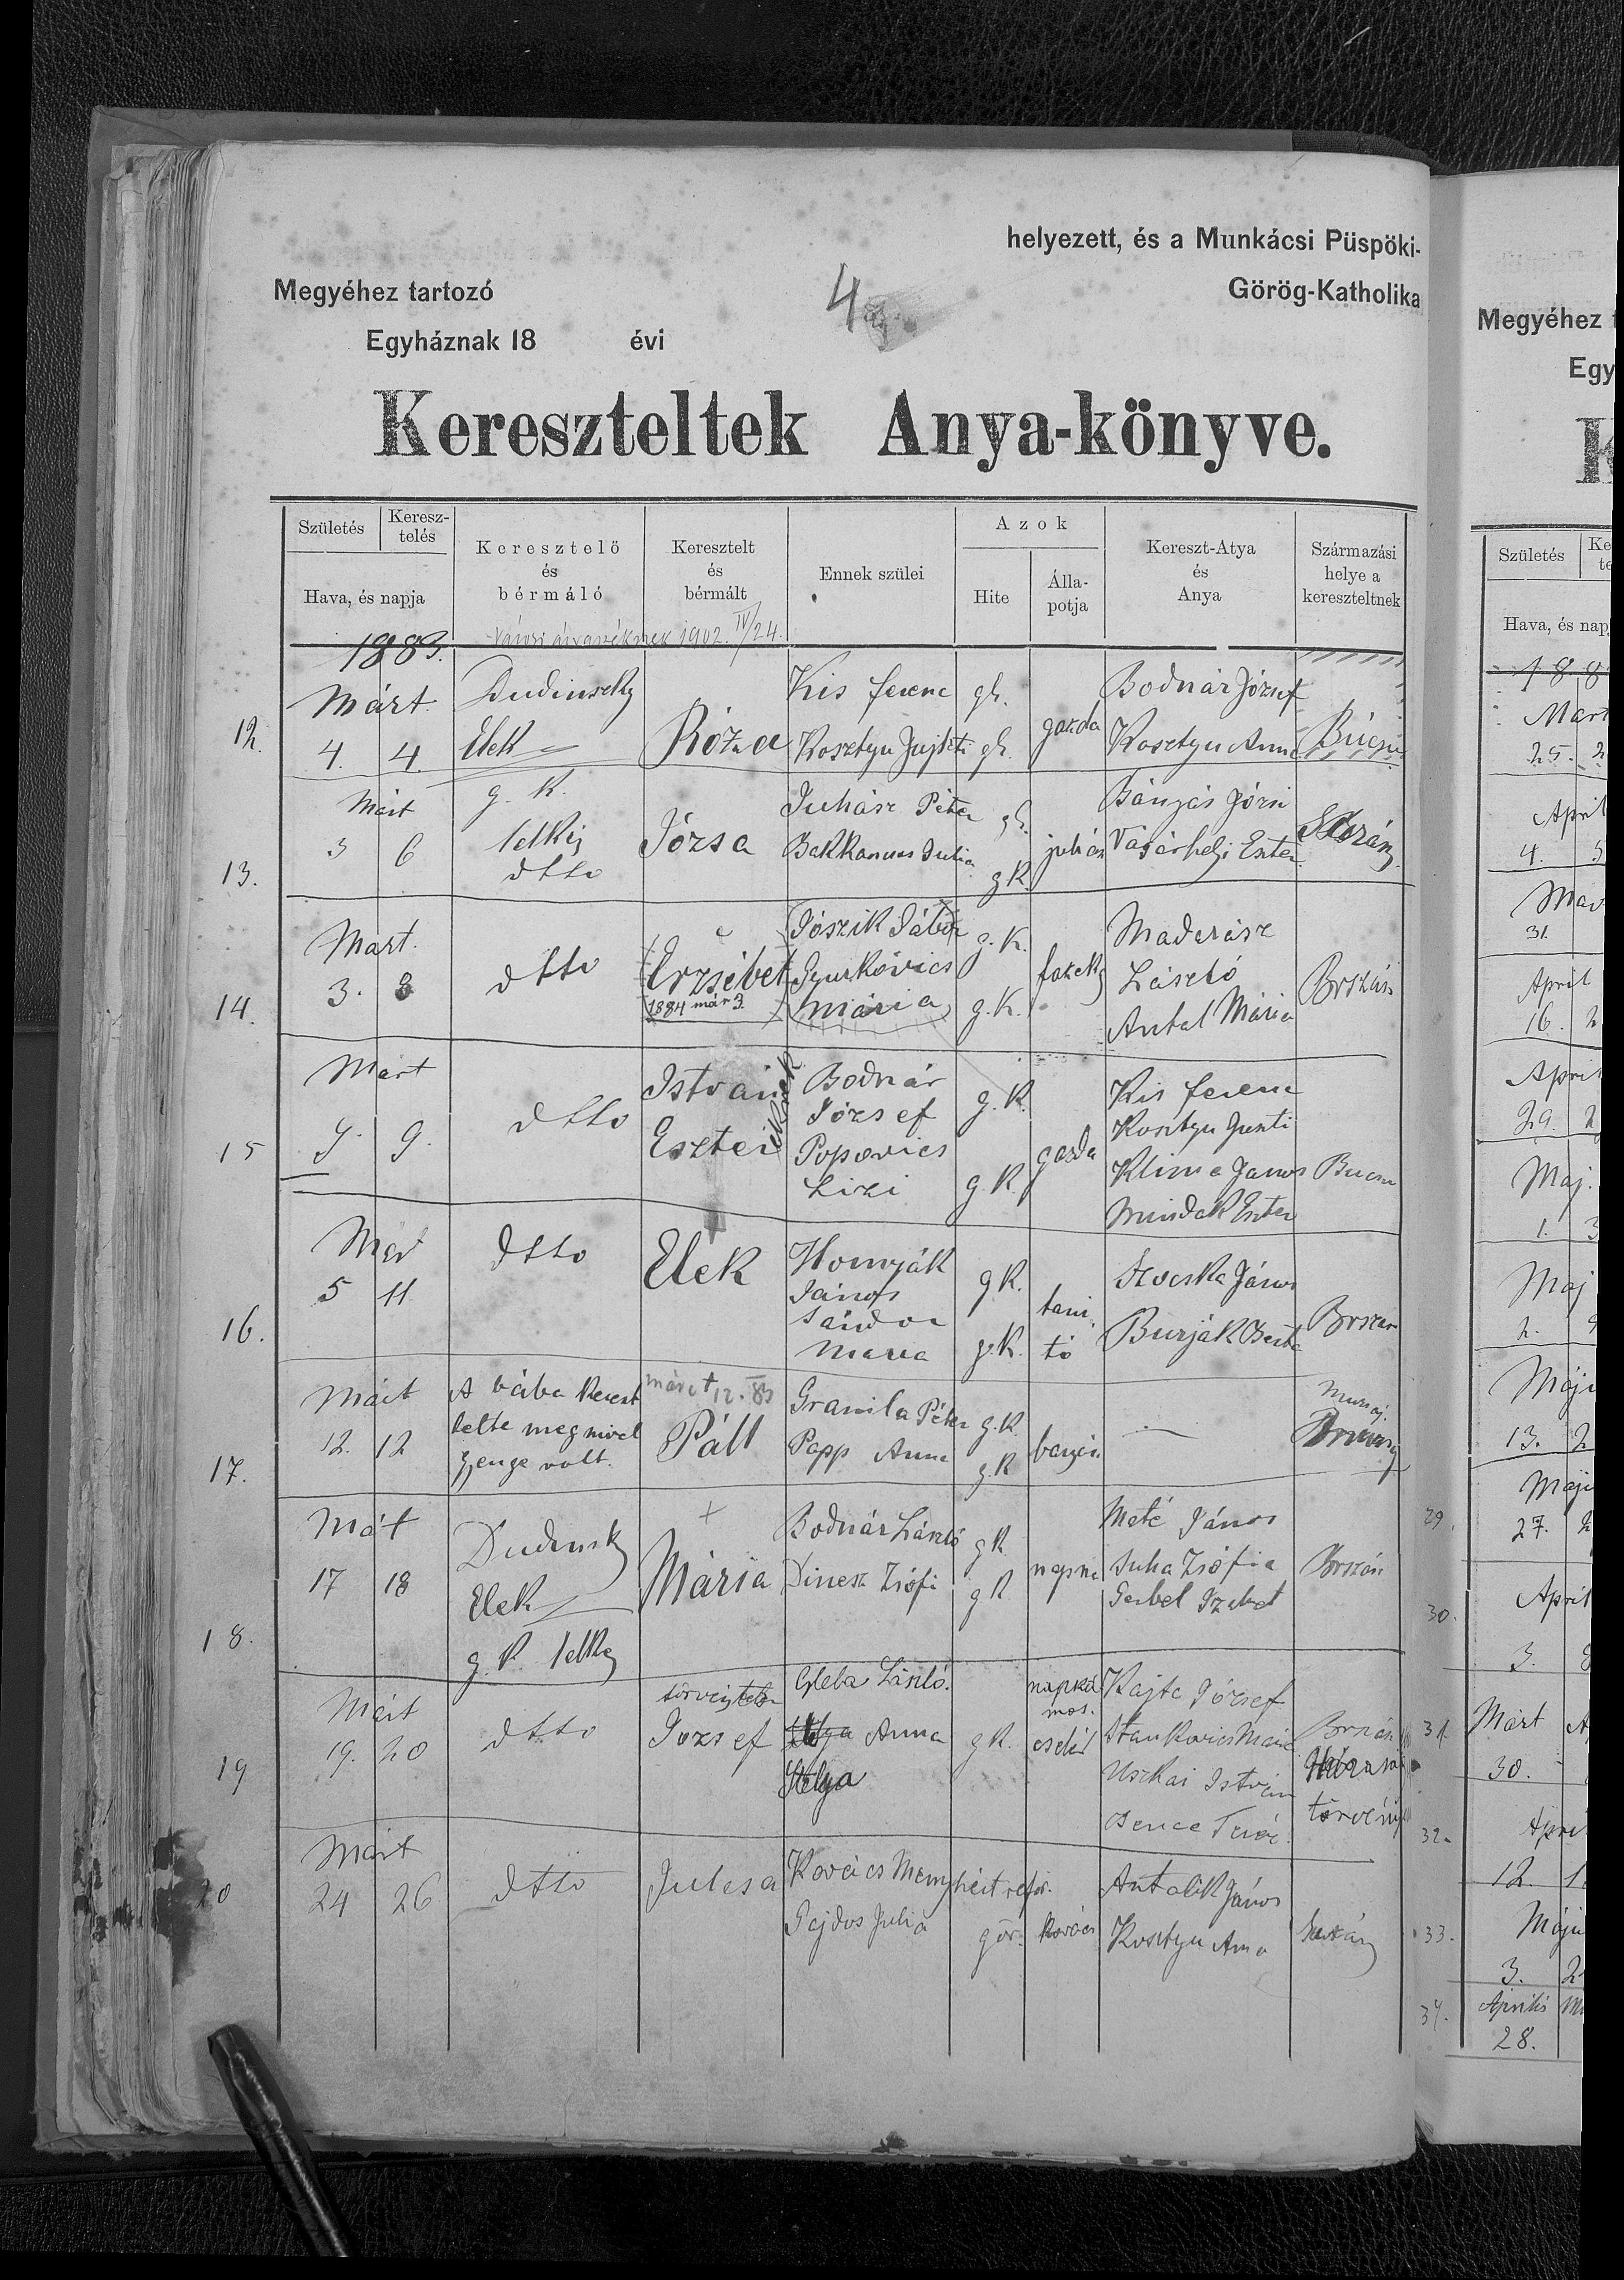 helyezett, és a Munkácsi Püspöki-
Megyéhez tartozó
4
Görög-Katholika
Egyháznak 18 évi
Kereszteltek Anya-könyve.
Születés
Keresz-
telés
Hava, és napja
Keresztelő
és
bérmáló
Keresztelt
és
bérmált
Ennek szülei
Azok
Hite
Álla-
potja
Kereszt-Atya
és
Anya
Származási
helye a
kereszteltnek
1902. IV/24.
1883.
12.
Márt.
4. 4.
Dudinszky
Elek
Róza
Kis ferenc
Kosztyu
gk.
gk.
gazda
Bodnár József
Kosztyu Anna
Búcsu
13.
Márt
3 6
g. K.
lelkész
dtto
Józsa
Juhász Péter
Julia
gk.
gK
juhász
Bányás Józsi
Vásárhelyi Eszter
14.
Mart.
3. 8
dtto
Erzsébet
1884 már 3.
Jószik Gábor
Gyurkovics
mária
g. K.
g. K.
Maderász
László
Antal Mária
15
Mart
9. 9.
dtto
István
Eszter
ikrek
Bodnár
József
Popovics
Lizi
g. K.
g. K.
gazda
Kis ferenc
Kosztyu Juszti
Klima Janos
Mindák Eszter
Bucsu
16.
Már
5 11
dtto
Elek
Homyák
János
Sándor
Maria
gK.
g.K.
tani-
tó
János
Burják Berta
17.
Márt
12. 12
A bába kereszt
telte meg mivel
gyenge volt.
márc 12. 83
Páll
Granila Péter
Papp Anna
g.K.
g.K
18.
Márt
17 18
Dudinszky
Elek
g. K lelkész
+
Mária
Bodnár László
Dinesz Zsófi
gK
gK
Maté János
Juha Zsófia
Gerbel Izabet
19
Márt
19. 20
dtto
törvénytelen
József
Gleba László.
Anna
Helga
gK.
napszá
mos.
cseléd
Kajta József
Stankovics Mária
Uszkai István
Bence Teréz
törvény
20
Márt
24 26
dtto
Julcsa
Kovács Menyhért refor.
Gajdos Julia
gör.
kovács
Antalik János
Kosztyu Anna
Megyéhez
Egy
K
Születés
Ke
te
Hava, és nap
188
Mart
25. 2
April
4. 5
Mar
31.
April
16. 2
April
29. 2
Maj.
1. 3
Maj
2. 9
Máju
13. 2
Máju
29.
27. 2
April
30.
3. 8
31.
Márt
30.
32.
Apri
12. 1
33.
Máju
3. 2
34.
Április
28.